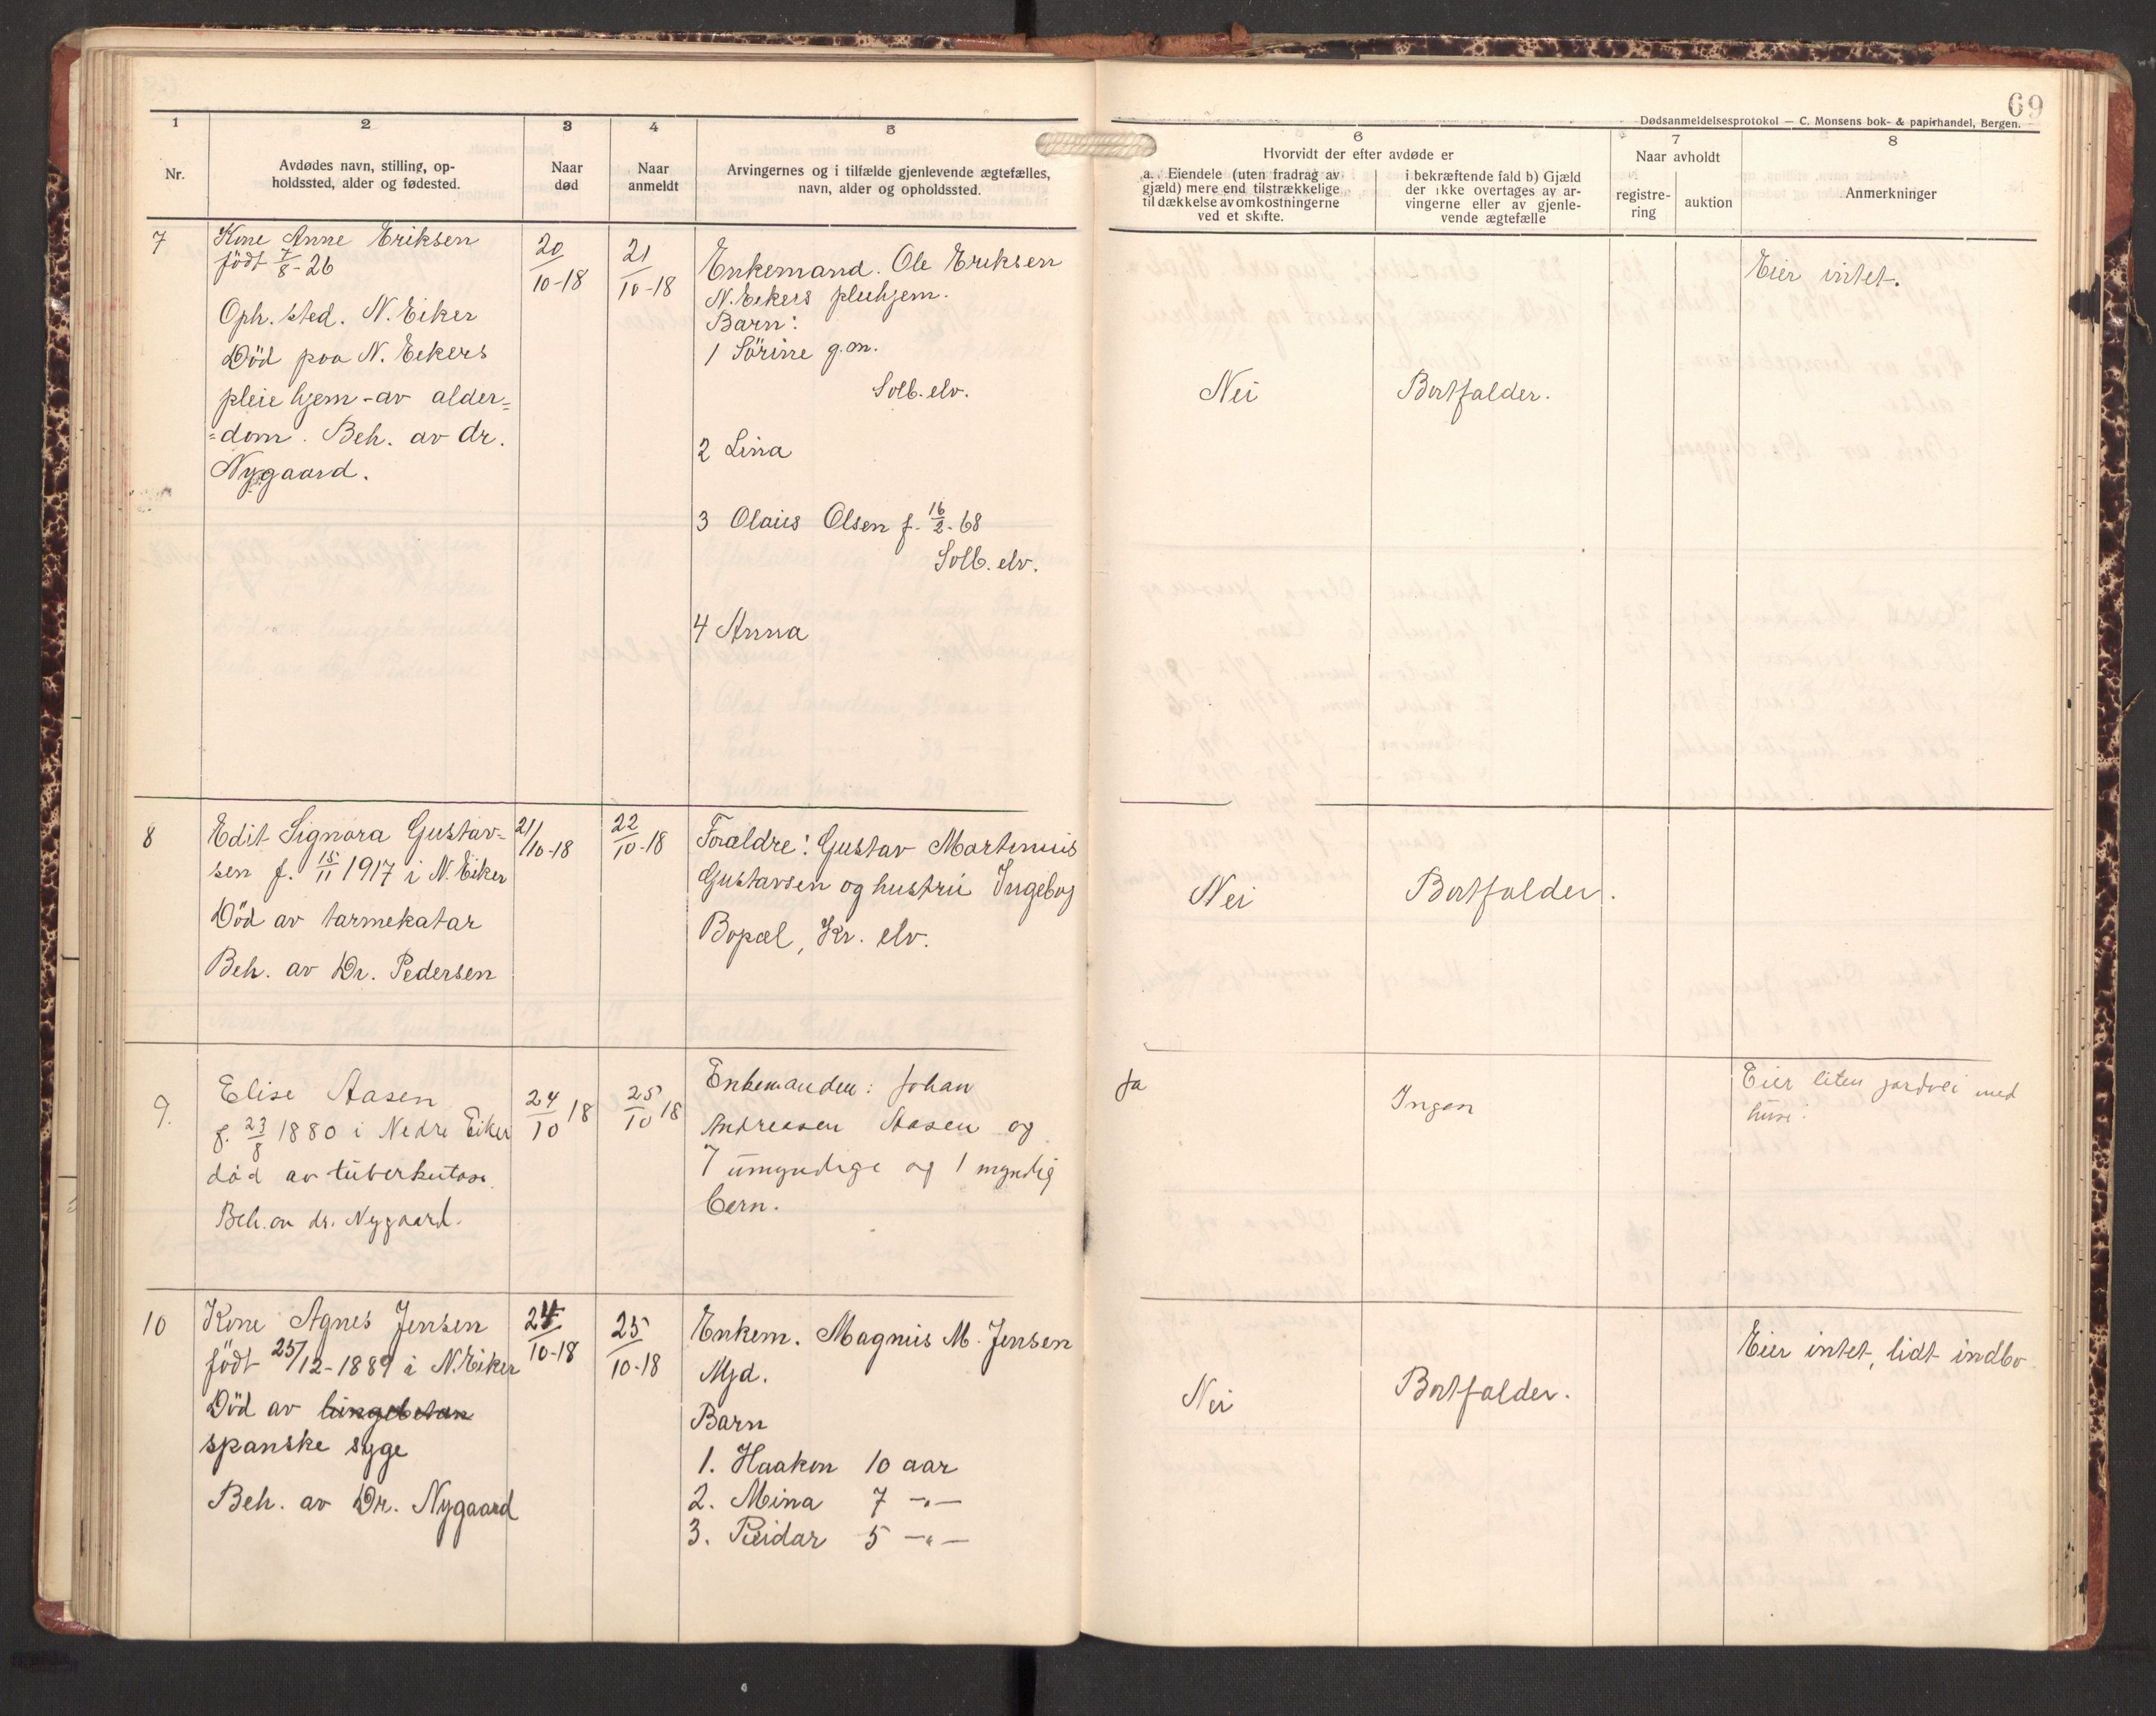 69
Dødsanmeldelsesprotokol — C. Monsens bok- & papirhandel, Bergen.
1 2 3 4 5 6 7 8
Nr.
Avdødes navn, stilling, op-
holdssted, alder og fødested.
Naar
død
Naar
anmeldt
Arvingernes og i tilfælde gjenlevende ægtefælles,
navn, alder og opholdssted.
Hvorvidt der efter avdøde er
a. Eiendele (uten fradrag av
gjæld) mere end tilstrækkelige
til dækkelse av omkostningerne
ved et skifte.
i bekræftende fald b) Gjæld
der ikke overtages av ar-
vingerne eller av gjenle-
vende ægtefælle
Naar avholdt
registre-
ring
auktion
Anmerkninger
7
Kone Anne Eriksen
født 7/8-26
Oph. sted. N. Eiker
Död paa N. Eekers
pleie hjem - av alder=
=dom. Beh. av dr.
Nygaard.
20/10-18
21/10-18
Enkemand. Ole Eriksen
N. Eekers pleihjem.
Barn:
1 Sörine g.m.
Solb. elv.
2 Lina
3 Olaus Olsen f. 16/2-68
Solb. elv.
4 Anna
Nei
Bortfalder.
Eier intet.
8
Edit Signora Gustav=
sen f. 15/11 1917 i N. Eiker
Död av tarmekatar
Beh. av Dr. Pedersen
21/10-18
22/10-18
Forældre: Gustav Martinius
Gustavsen og hustru Ingebog
Bopæl, Kr. elv.
Nei
Bortfalder.
9.
Elise Aasen
f. 23/8 1880 i Nedre Eiker
død av tuberkulose.
Beh. av dr. Nygaard.
24/10 18
25/10 18
Enkemanden: Johan
Andreasen Aasen og
7 umyndige og 1 myndig
børn.
Ja
Ingen
Eier liten jordvei med
huse.
10
Kone Agnes Jensen
født 25/12-1889 i N. Eiker
Död av lungebetæn
spanske syge
Beh. av Dr. Nygaard
24/10-18
25/10-18
Enkem. Magnus M. Jensen
Mjd.
Barn
1. Haakon 10 aar
2. Mina 7 —"—
3. Reidar 5 —"—
Nei
Bortfalder.
Eier intet, lidt indbo